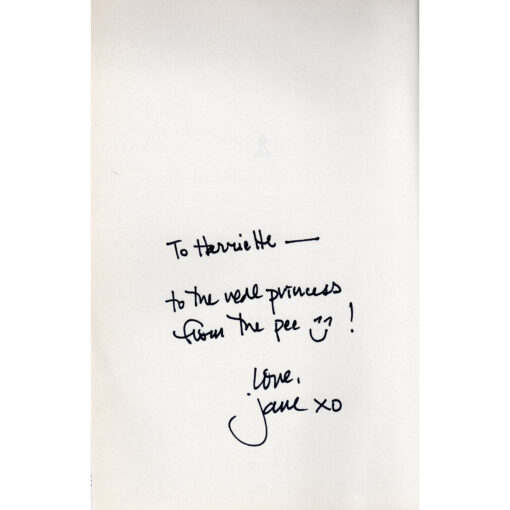 To Harriette —
to the real princess
from the pee !
love,
jane xo